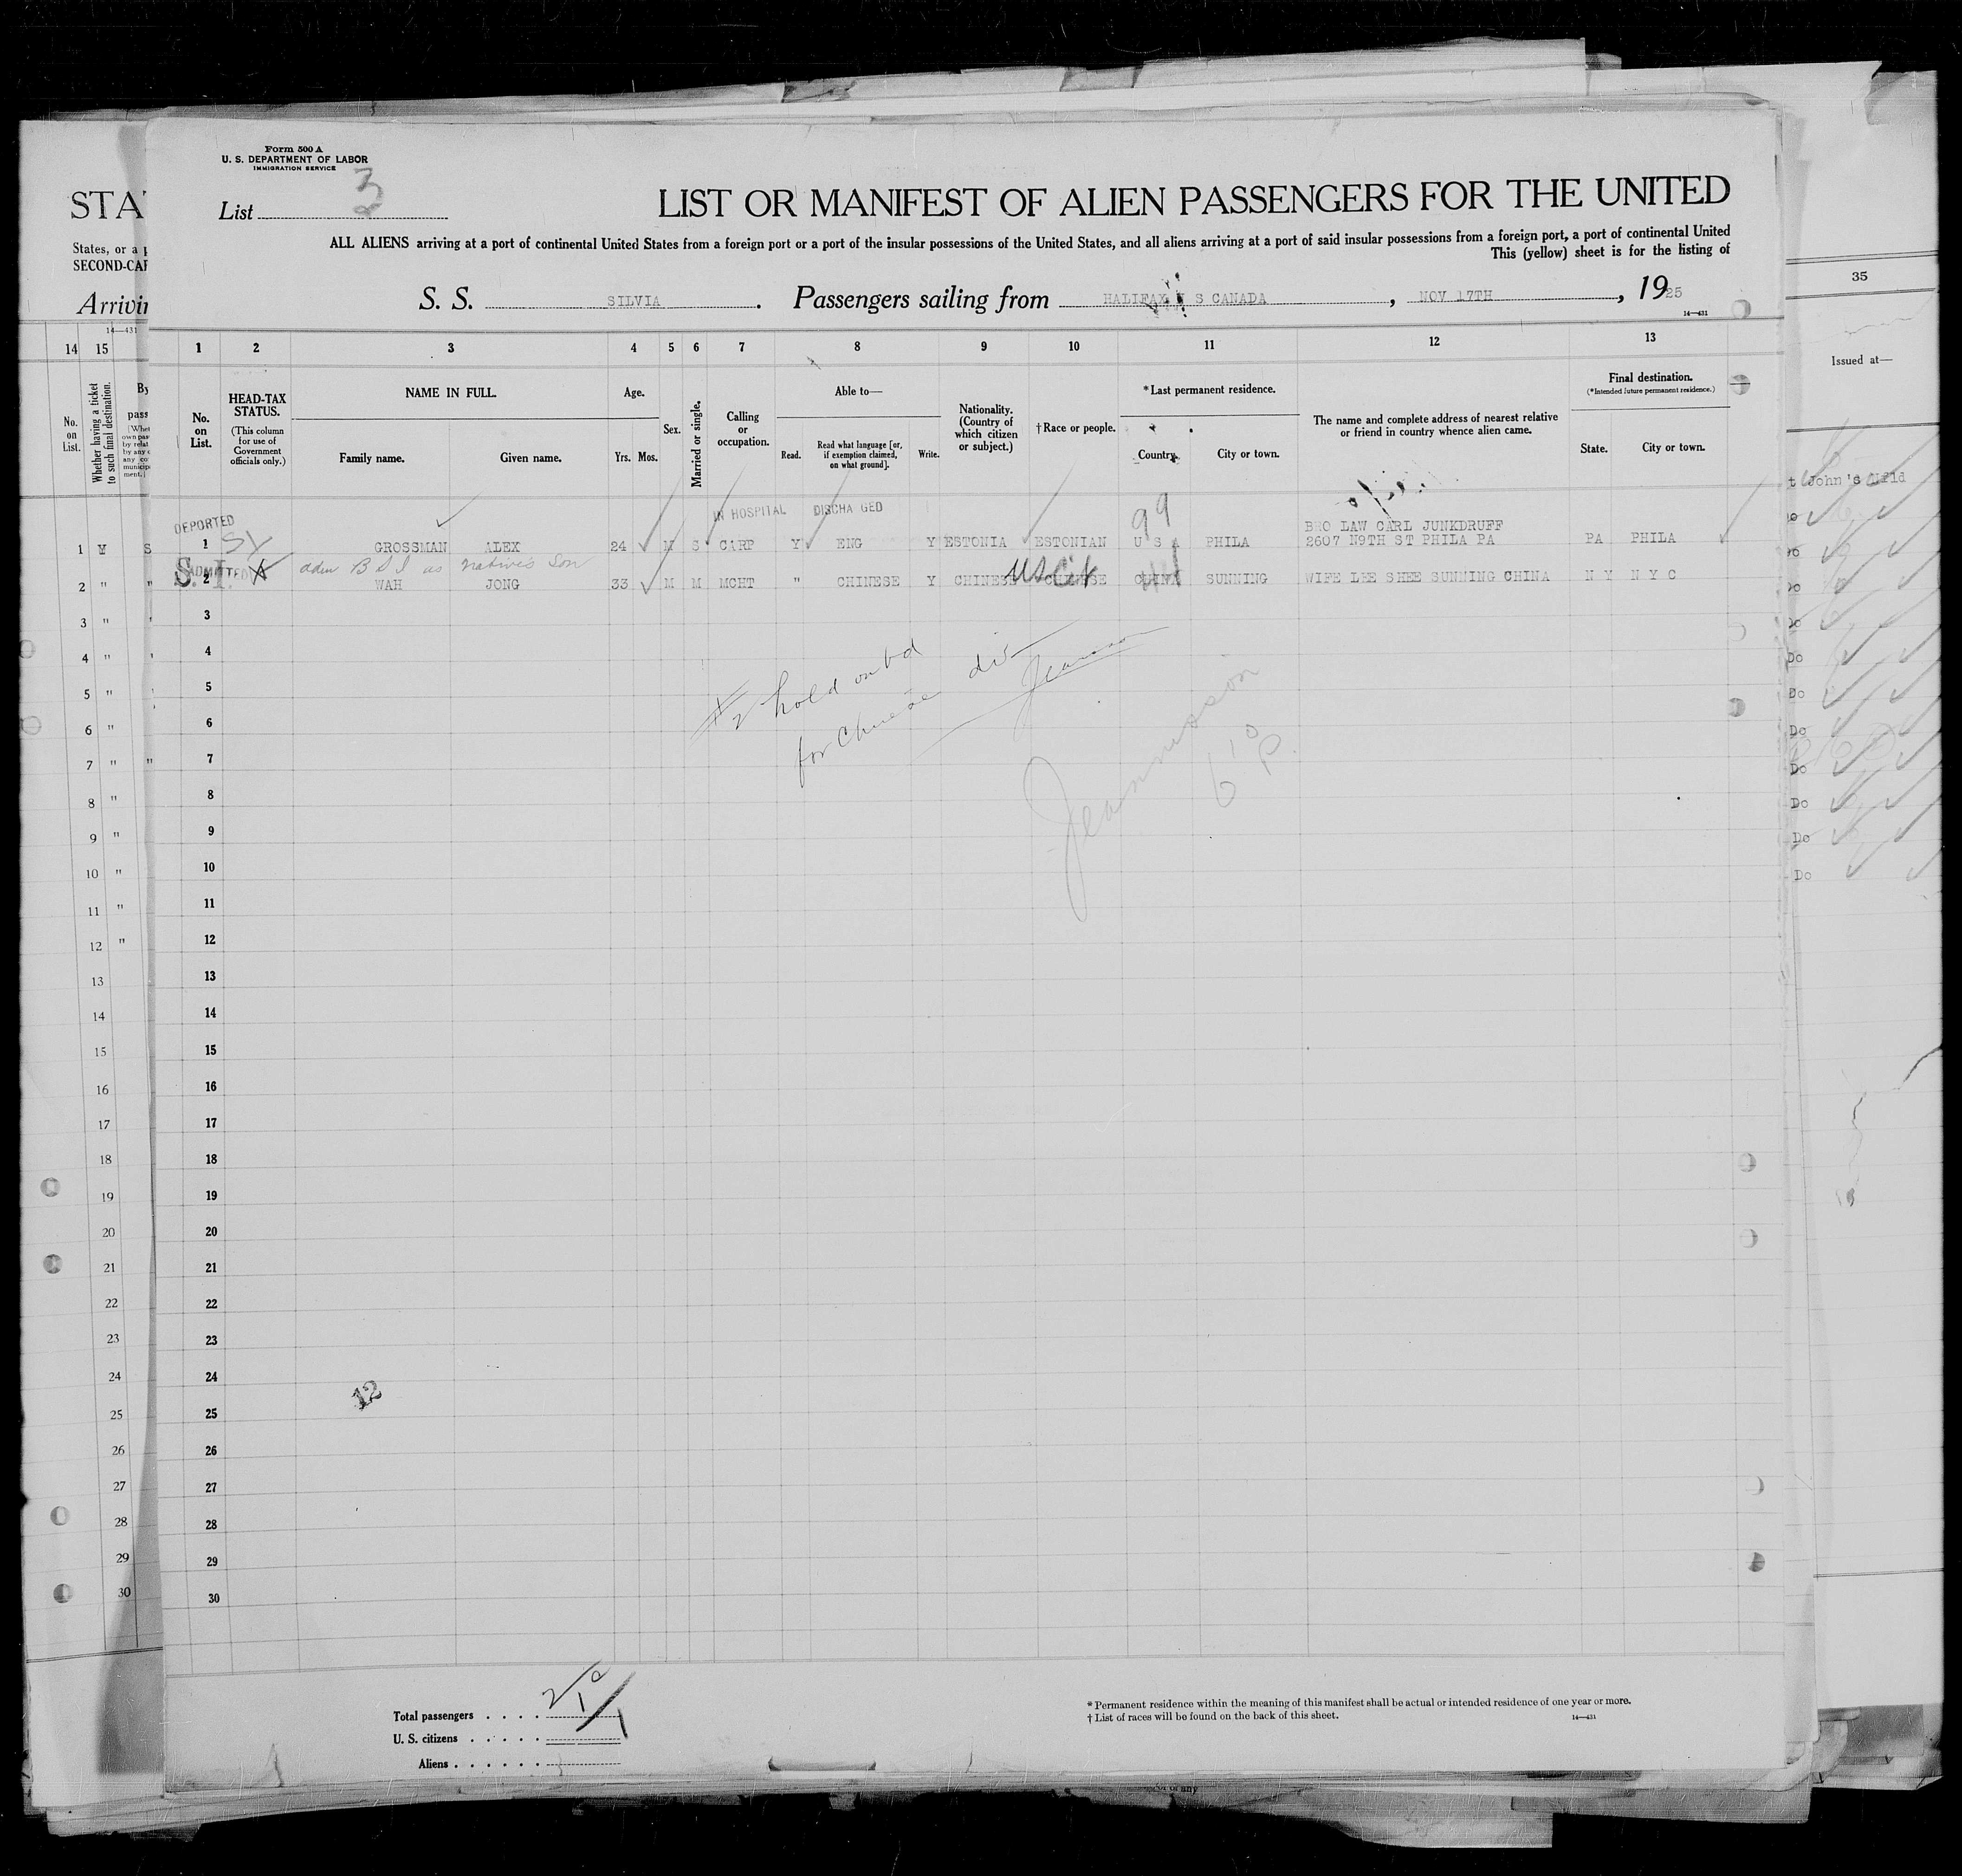 Form 500 A
U. S. DEPARTMENT OF LABOR
IMMIGRATION SERVICE
List 3
LIST OR MANIFEST OF ALIEN PASSENGERS FOR THE UNITED
ALL ALIENS arriving at a port of continental United States from a foreign port or a port of the insular possessions of the United States, and all aliens arriving at a port of said insular possessions from a foreign port, a port of continental United
This (yellow) sheet is for the listing of
S. S. SILVIA. Passengers sailing from HALIFAX N S CANADA, NOV 17TH, 1925
14—431
1 2 3 4 5 6 7 8 9 10 11 12 13
No. on List.
HEAD-TAX STATUS.
(This column for use of Government officials only.)
NAME IN FULL.
Family name. Given name.
Age.
Yrs. Mos.
Sex.
Married or single.
Calling or occupation.
Able to—
Read. Read what language [or, if exemption claimed, on what ground]. Write.
Nationality. (Country of which citizen or subject.)
†Race or people.
*Last permanent residence.
Country. City or town.
The name and complete address of nearest relative or friend in country whence alien came.
Final destination.
(*Intended future permanent residence.)
State. City or town.
DEPORTED IN HOSPITAL DISCHA GED 99
BRO LAW CARL JUNKDRUFF
1 GROSSMAN ALEX 24 M S CARP Y ENG Y ESTONIA ESTONIAN U S A PHILA 2607 N9TH ST PHILA PA PA PHILA
adm B S I as natives son
S. I. ADMITTED
2 WAH JONG 33 M M MCHT " CHINESE Y CHINESE US Cit CHINESE CHINA SUNNING WIFE LEE SHEE SUNNING CHINA N Y N Y C
3
4
5
6
7
8
9
10
11
12
13
14
15
16
17
18
19
20
21
22
23
24
25
26
27
28
29
30
#2 hold on bd
for Chinese div
12
Total passengers
U. S. citizens
Aliens
* Permanent residence within the meaning of this manifest shall be actual or intended residence of one year or more.
† List of races will be found on the back of this sheet.
14—431
STAT
States, or a p
SECOND-CAB
Arrivin
14—431
14 15
No. on List.
Whether having a ticket to such final destination.
1
2 "
3 "
4 "
5 "
6 "
7 "
8 "
9 "
10 "
11 "
12 "
13
14
15
16
17
18
19
20
21
22
23
24
25
26
27
28
29
30
35
Issued at—
t John's Nfld
Do
Do
Do
Do
Do
Do
Do
Do
Do
Do
Do